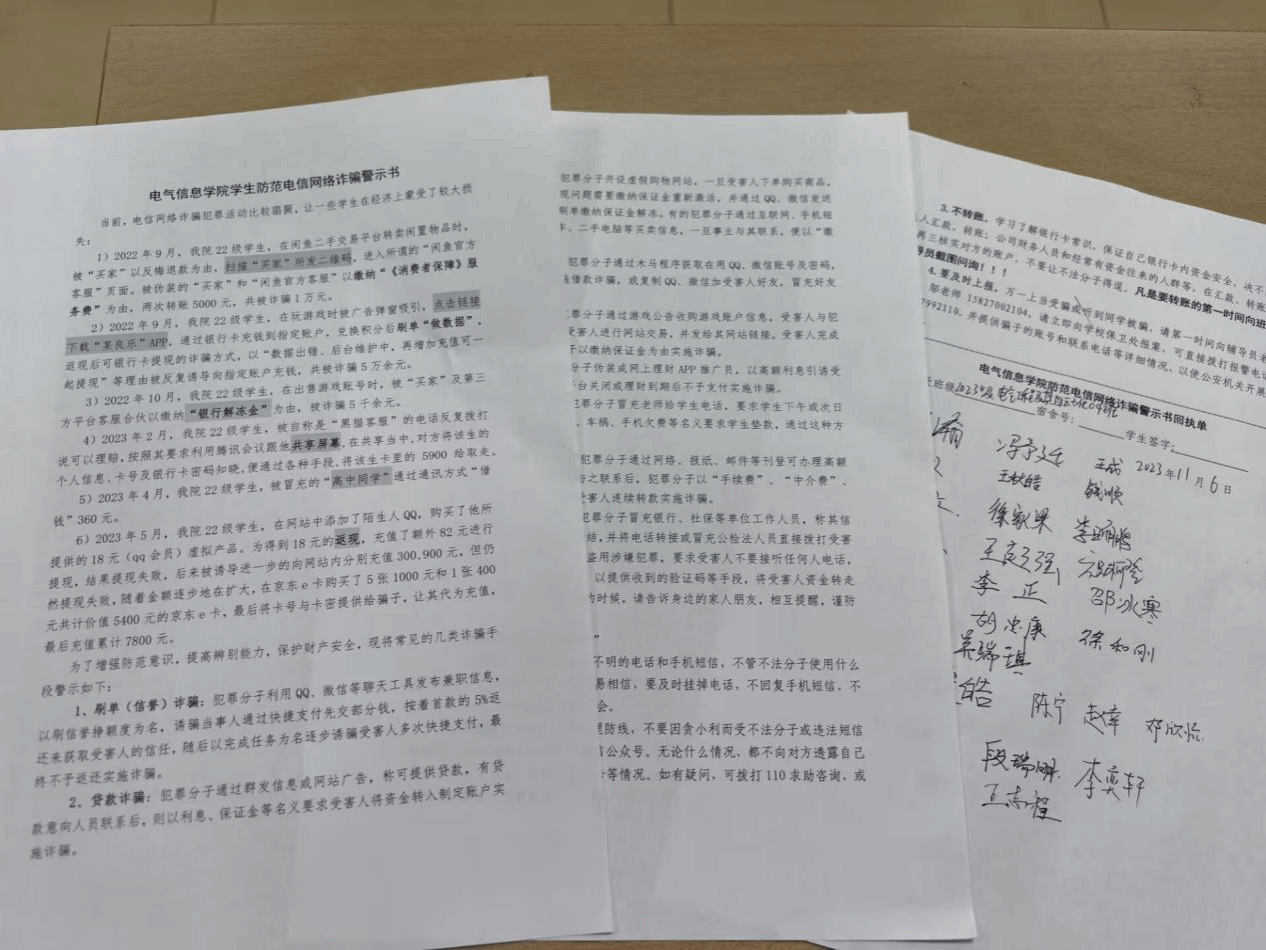 电气信息学院学生防范电信网络诈骗警示书
当前，电信网络诈骗犯罪活动比较猖獗，让一些学生在经济上蒙受了较大损
失：
1）2022 年 9 月，我院 22 级学生，在闲鱼二手交易平台转卖闲置物品时，
被“买家”以反悔退款为由，扫描“买家”所发二维码，进入所谓的“闲鱼官方
客服”页面。被伪装的“买家”和“闲鱼官方客服”以缴纳“《消费者保障》服
务费”为由，两次转账 5000 元，共被诈骗 1 万元。
2）2022 年 9 月，我院 22 级学生，在玩游戏时被广告弹窗吸引，点击链接
下载“某良乐”APP，通过银行卡充钱到指定账户，兑换积分后刷单“做数据”，
返现后可银行卡提现的诈骗方式，以“数据出错、后台维护中，再增加充值可一
起提现”等理由被反复诱导向指定账户充钱，共被诈骗 5 万余元。
3）2022 年 10 月，我院 22 级学生，在出售游戏账号时，被“买家”及第三
方平台客服合伙以缴纳“银行解冻金”为由，被诈骗 5 千余元。
4）2023 年 2 月，我院 22 级学生，被自称是“黑猫客服”的电话反复拨打
说可以理赔，按照其要求利用腾讯会议跟他共享屏幕，在共享当中，对方将该生的
个人信息、卡号及银行卡密码知晓，便通过各种手段，将该生卡里的 5900 给取走。
5）2023 年 4 月，我院 22 级学生，被冒充的“高中同学”通过通讯方式“借
钱”360 元。
6）2023 年 5 月，我院 22 级学生，在网站中添加了陌生人 QQ，购买了他所
提供的 18 元（qq 会员）虚拟产品。为得到 18 元的返现，充值了额外 82 元进行
提现，结果提现失败，后来被诱导进一步的向网站内分别充值 300,900 元，但仍
然提现失败，随着金额逐步地在扩大，在京东 e 卡购买了 5 张 1000 元和 1 张 400
元共计价值 5400 元的京东 e 卡，最后将卡号与卡密提供给骗子，让其代为充值，
最后充值累计 7800 元。
为了增强防范意识，提高辨别能力，保护财产安全，现将常见的几类诈骗手
段警示如下：
1、刷单（信誉）诈骗：犯罪分子利用 QQ、微信等聊天工具发布兼职信息，
以刷信誉挣额度为名，诱骗当事人通过快捷支付先交部分钱，按着首款的 5%返
还来获取受害人的信任，随后以完成任务为名逐步诱骗受害人多次快捷支付，最
终不予返还实施诈骗。
2、贷款诈骗：犯罪分子通过群发信息或网站广告，称可提供贷款，有贷
款意向人员联系后，则以利息、保证金等名义要求受害人将资金转入制定账户实
施诈骗。
犯罪分子开设虚假购物网站，一旦受害人下单购买商品，
现问题需要缴纳保证金重新激活，并通过 QQ、微信发送
刷单缴纳保证金解冻。有的犯罪分子通过互联网、手机短
车、二手电脑等买卖信息，一旦事主与其联系，便以“缴
犯罪分子通过木马程序获取在用 QQ、微信账号及密码，
施借款诈骗，或复制 QQ、微信加受害人好友，冒充好友
罪分子通过游戏公告收购游戏账户信息，受害人与犯
受害人进行网站交易，并发给其网站链接，受害人完成
以缴纳保证金为由实施诈骗。
分子伪装成网上理财 APP 推广员，以高额利息引诱受
台关闭或理财到期后不予支付实施诈骗。
犯罪分子冒充老师给学生电话，要求学生下午或次日
、车祸、手机欠费等名义要求学生垫款，通过这种方
犯罪分子通过网络、报纸、邮件等刊登可办理高额
与之联系后，犯罪分子以“手续费”、“中介费”、
受害人连续转款实施诈骗。
犯罪分子冒充银行、社保等单位工作人员，称其信
结，并将电话转接或冒充公检法人员直接拨打受害
盗用涉嫌犯罪，要求受害人不要接听任何人电话，
以提供收到的验证码等手段，将受害人资金转走
的时候，请告诉身边的家人朋友，相互提醒，谨防
”
不明的电话和手机短信，不管不法分子使用什么
易相信，要及时挂掉电话，不回复手机短信，不
会。
理防线，不要因贪小利而受不法分子或违法短信
信公众号。无论什么情况，都不向对方透露自己
卡等情况。如有疑问，可拨打 110 求助咨询，或
3.不转账，学习了解银行卡常识，保证自己银行卡内资金安全，决不
人汇款、转账；公司财务人员和经常有资金往来的人群等，在汇款、转账
再三核实对方的账户，不要让不法分子得逞。凡是要转账的第一时间向班
导员截图问询！！！
4.要及时上报，万一上当受骗或听到同学被骗，请第一时间向辅导员老
邬老师 15827002104，请立即向学校保卫处报案，可直接拨打报警电话
7992110，并提供骗子的账号和联系电话等详细情况，以便公安机关开展
电气信息学院防范电信网络诈骗警示书回执单
班级
宿舍号： 学生签字：
2023 年 11 月 6 日
王成
王秋皓 钱顺
徐家杲
李正 邵冰寒
胡忠康 徐和刚
吴瑞琪
皓 陈宁 赵幸 邓欣怡
段瑞鹏 李奕轩
王志程